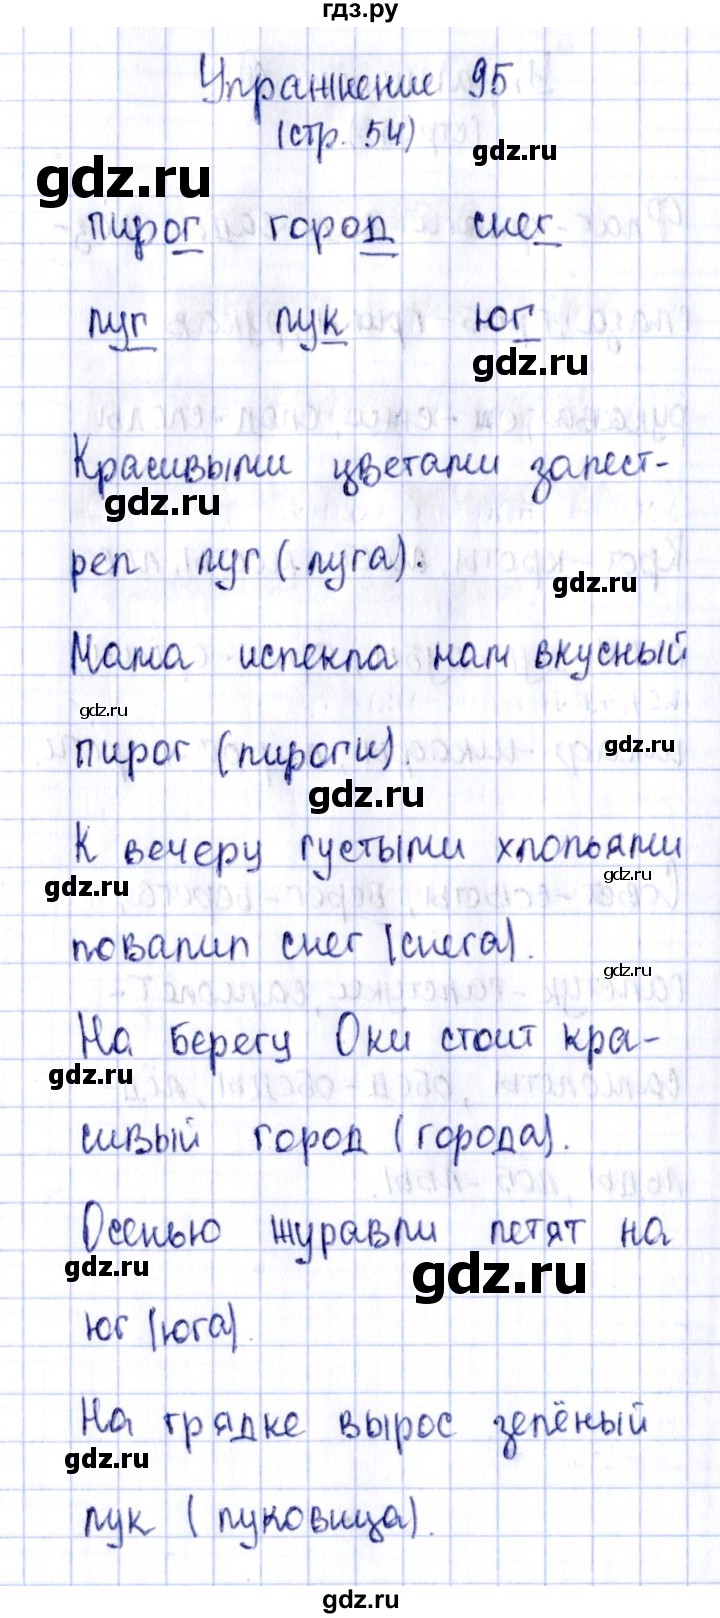 гдз.ру
Упражнение 95
(стр. 54)
gdz.ru
gdz.ru
пирог город снег
луг лук юг
gdz.ru
Красивыми цветами запест-
gdz.ru
рел луг (луга).
gdz.ru
Мама испекла нам вкусный
gdz.ru
gdz.ru
пирог (пироги).
gdz.ru
К вечеру густыми хлопьями
gdz.ru
gdz.ru
повалил снег (снега).
gdz.ru
На берегу Оки стоит кра-
gdz.ru
сивый город (города).
Осенью журавли летят на
gdz.ru
gdz.ru
юг (юга).
На грядке вырос зелёный
gdz.ru
лук (луковица).
gdz.ru